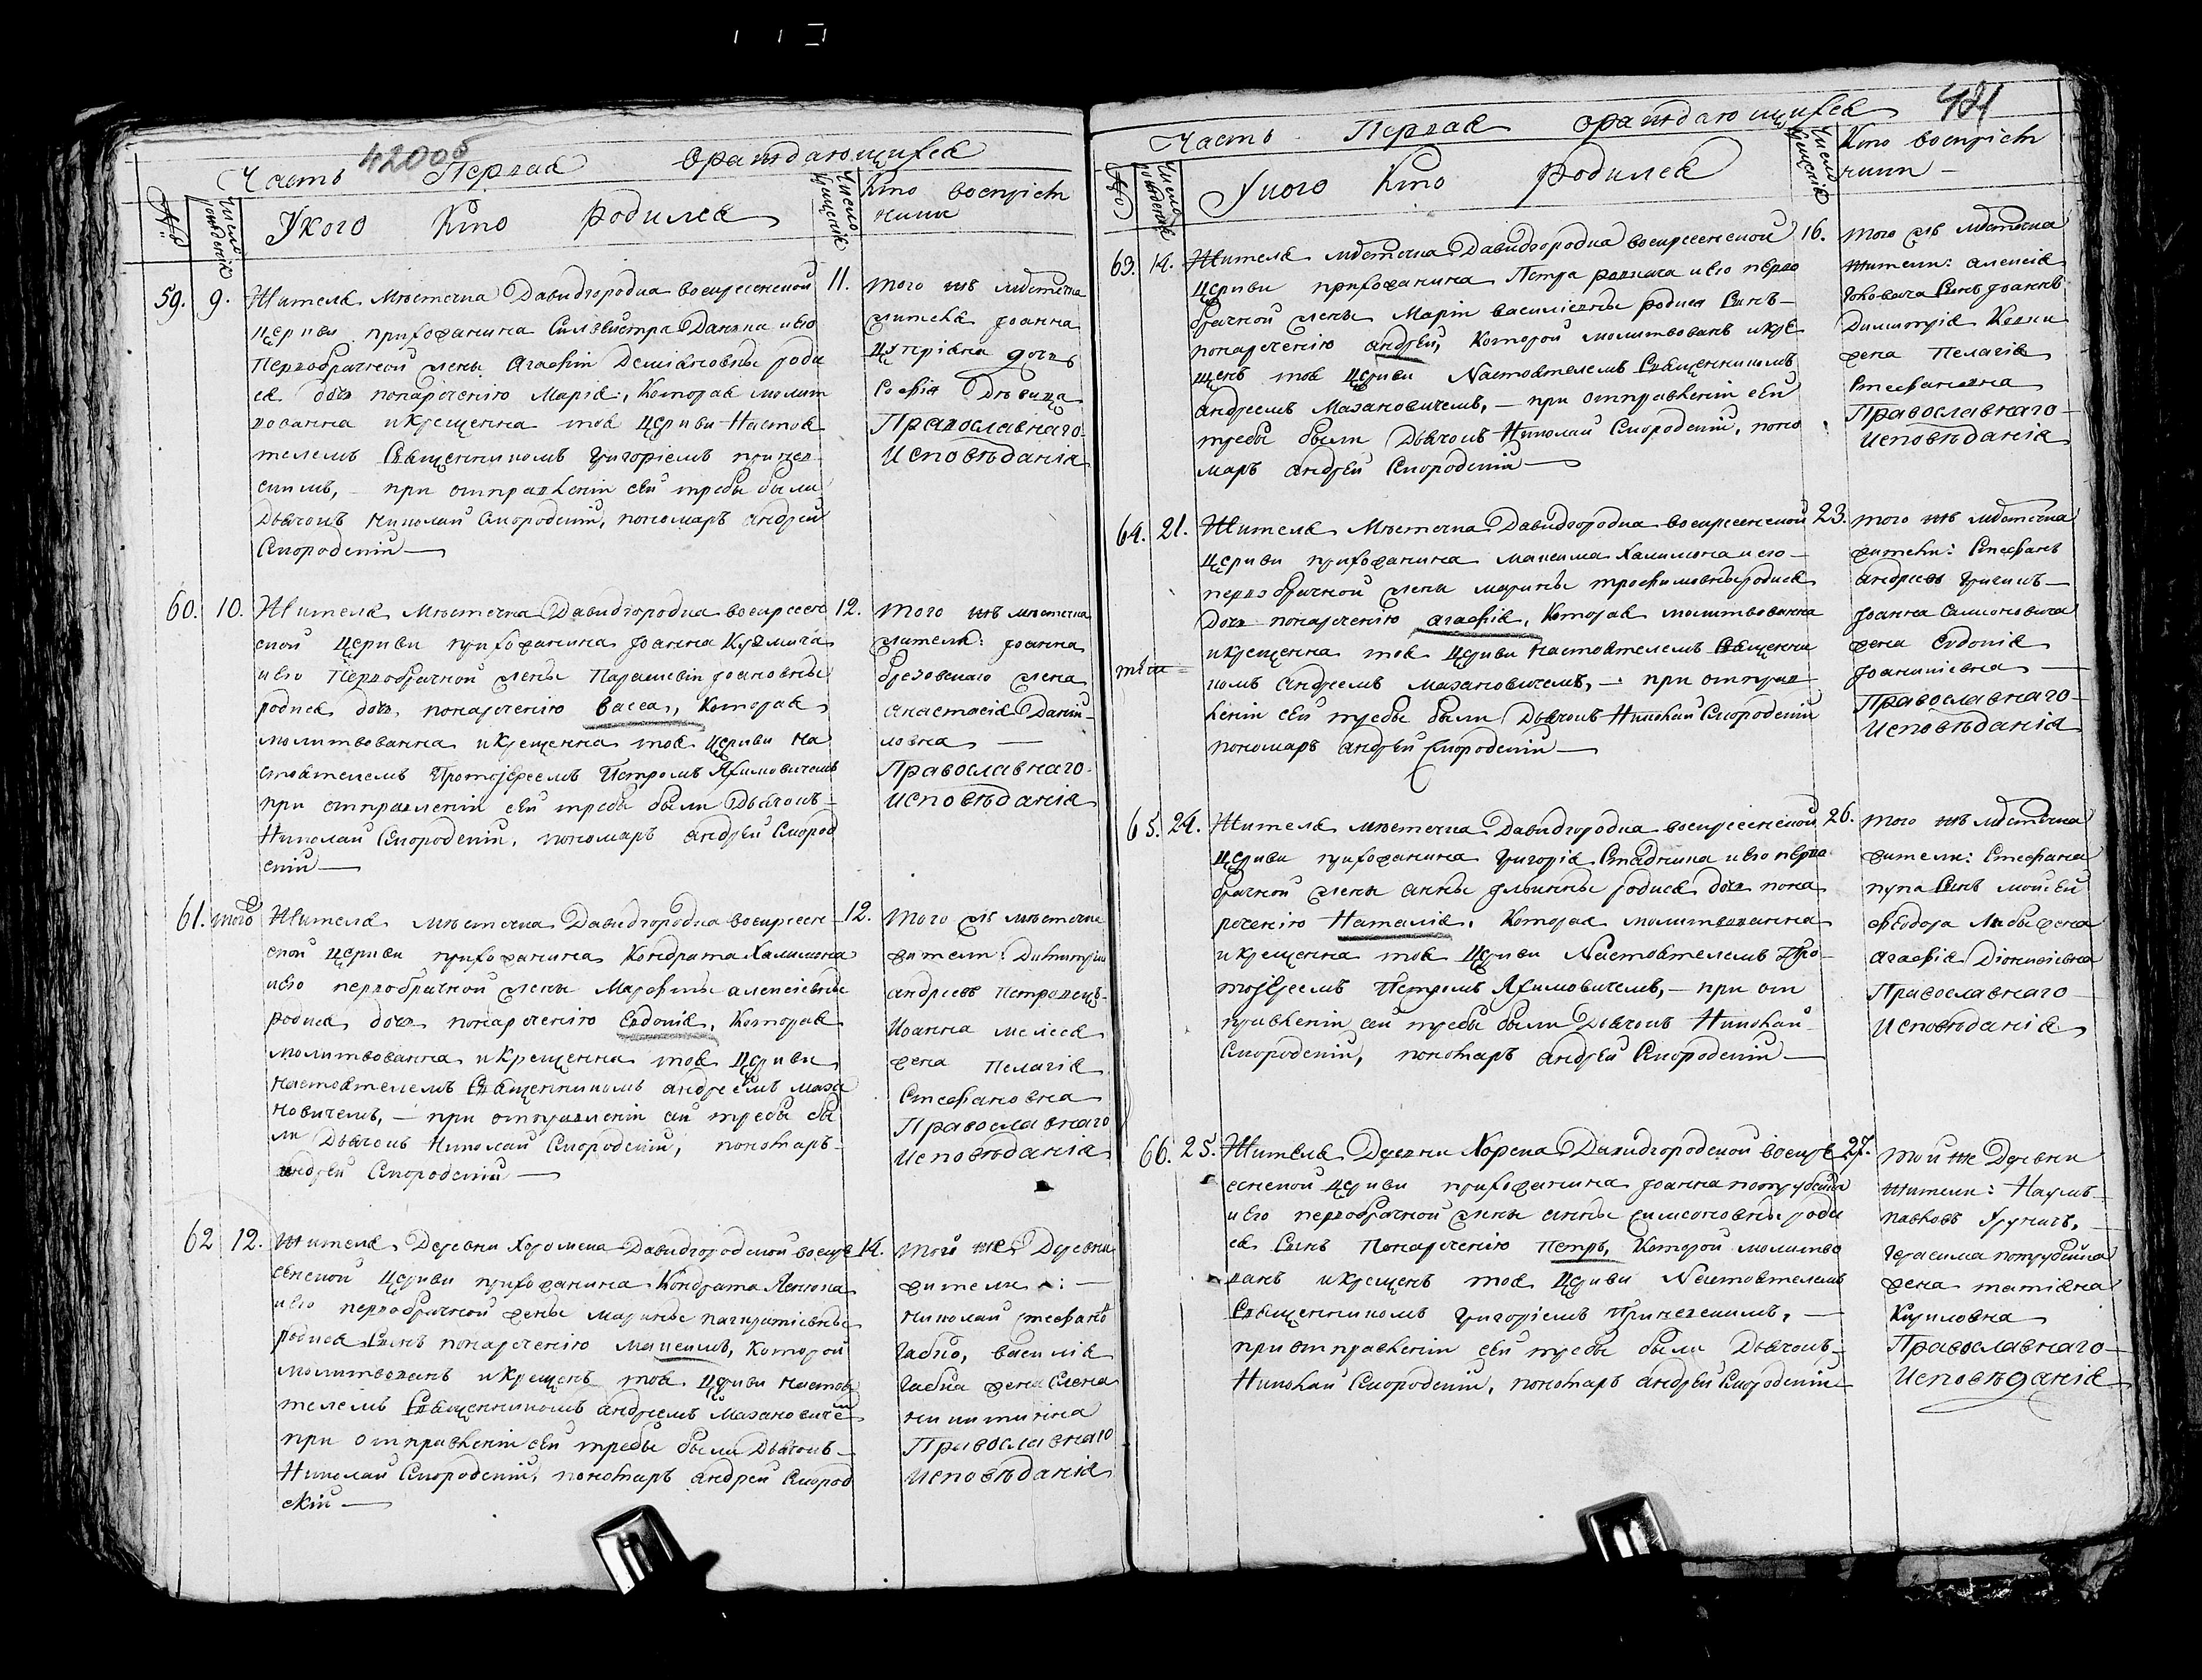 420об
Часть Первая Ораждающихся
№
Число рождения
У кого Кто родился
Число Крещения
Кто восприем
никы
59. 9.
Жителя Мѣстечка Давидгородка воскресенской
церкви прихожанина Силвестра Данка и его
Первобрачной жены Агафiи Демiановны роди
ся дочь понаречению Марiя, которая молит
вованна и крещенна тоя церкви Настоя
телемъ Священникомъ Григорiемъ
при отправленiи сей требы были
Дьячокъ Николай Смородскiй, пономарь андрей
Смородскiй
11.
того жъ мѣстечка
жителя Iоанна
дочь
Софiя Дѣвица
Православнаго
Исповѣданiя
60. 10.
Жителя Мѣстечка Давидгородка воскресен
ской церкви прихожанина Iоанна
и его Первобрачной жены Параскевiи Iоановны
родися дочь понаречению васса, которая
молитвованна и крещенна тоя церкви На
стоятелемъ Протоiереемъ Петромъ Якимовичемъ
при отправленiи сей требы были Дьячокъ
Николай Смородскiй, пономарь андрей Смород
скiй
12.
того жъ мѣстечка
жители: Iоанна
брезовскаго жена
анастасiя Данiи
ловна
Православнаго
исповѣданiя
61. того
Жителя мѣстечка Давидгородка воскресен
ской церкви прихожанина Кондрата Халимона
и его первобрачной жены Марфы алексiевны
родися дочь понаречению Евдокiя, которая
молитвованна и крещенна тоя церкви
настоятелемъ Священникомъ андреемъ маза
новичемъ, при отправленiи сей требы бы
ли Дьячокъ Николай Смородскiй, пономарь
андрей Смородскiй
12.
того жъ мѣстечка
жители: Димитрiй
андреевъ Петровецъ
Иоанна мелеся
жена Пелагiя
Стефановна
Православнаго
Исповѣданiя
62 12.
Жителя Деревни Хоромска Давидгородской воскре
сенской церкви прихожанина Кондрата Ленкова
и его первобрачной жены марины панкратiевны
родися Сынъ понаречению максимъ, который
молитвованъ и крещенъ тоя церкви настоя
телемъ Священникомъ андреемъ Мазановичемъ
при отправленiи сей требы были Дьячокъ
Николай Смородскiй, пономарь андрей Смород
скiй
14.
той же Деревни
жители:
николай стефановъ
Габко, василiя
Габка жена Елена
никитична
Православнаго
исповѣданiя
421
Часть Первая Ораждающихся
№
Число рождения
У кого Кто родился
Число Крещения
Кто восприем
никы
63. 14.
Жителя мѣстечка Давидгородка воскресенской
церкви прихожанина Петра и его перво
брачной жены Марiи василiевны родися Сынъ
понаречению андрей, который молитвованъ и кре
щенъ тоя церкви Настоятелемъ Священникомъ
андреемъ Мазановичемъ, при отправленiи сей
требы были Дьячокъ Николай Смородскiй, поно
марь андрей Смородскiй
16.
того жъ мѣстечка
жители: алексiя
Сынъ Iоаннъ
Димитрiя
жена Пелагiя
Стефановна
Православнаго
исповѣданiя
64. 21.
Жителя Мѣстечка Давидгородка воскресенской
церкви прихожанина максима Халимона и его
первобрачной жены марины трофимовны родися
дочь понаречению агафiя, которая молитвованна
и крещенна тоя церкви настоятелемъ Священни
комъ андреемъ мазановичемъ, при отправ
ленiи сей требы были Дьячокъ Николай Смородскiй
пономарь андрей Смородскiй
23.
того жъ мѣстечка
жители: Стефанъ
андреевъ
Iоанна Самсоновича
жена Евдокiя
Iоанникiевна
Православнаго
Исповѣданiя
65. 24.
Жителя мѣстечка Давидгородка воскресенской
церкви прихожанина Григорiя Стадника и его перво
брачной жены анны родися дочь пона
речению Наталiя, которая молитвованна
и крещенна тоя церкви Настоятелемъ Про
тоiереемъ Петромъ Якимовичемъ, при от
правленiи сей требы были Дьячокъ Николай
Смородскiй, пономарь андрей Смородскiй
26.
того жъ мѣстечка
жители: Стефана
пупа Сынъ моисей
феодора жена
агафiя Дiонисiевна
Православнаго
Исповѣданiя
66. 25.
Жителя Деревни Хорска Давидгородской воскре
сенской церкви прихожанина Iоанна потрубейка
и его первобрачной жены анны симеоновны роди
ся Сынъ Понаречению петръ, который молитво
ванъ и крещенъ тоя церкви Настоятелемъ
Священникомъ Григорiемъ
при отправленiи сей требы были Дьячокъ
Николай Смородскiй, пономарь андрей Смородскiй
27.
той же Деревни
жители: Наумъ
павловъ
Герасима потрубейка
жена татiяна
Кириловна
Православнаго
Исповѣданiя